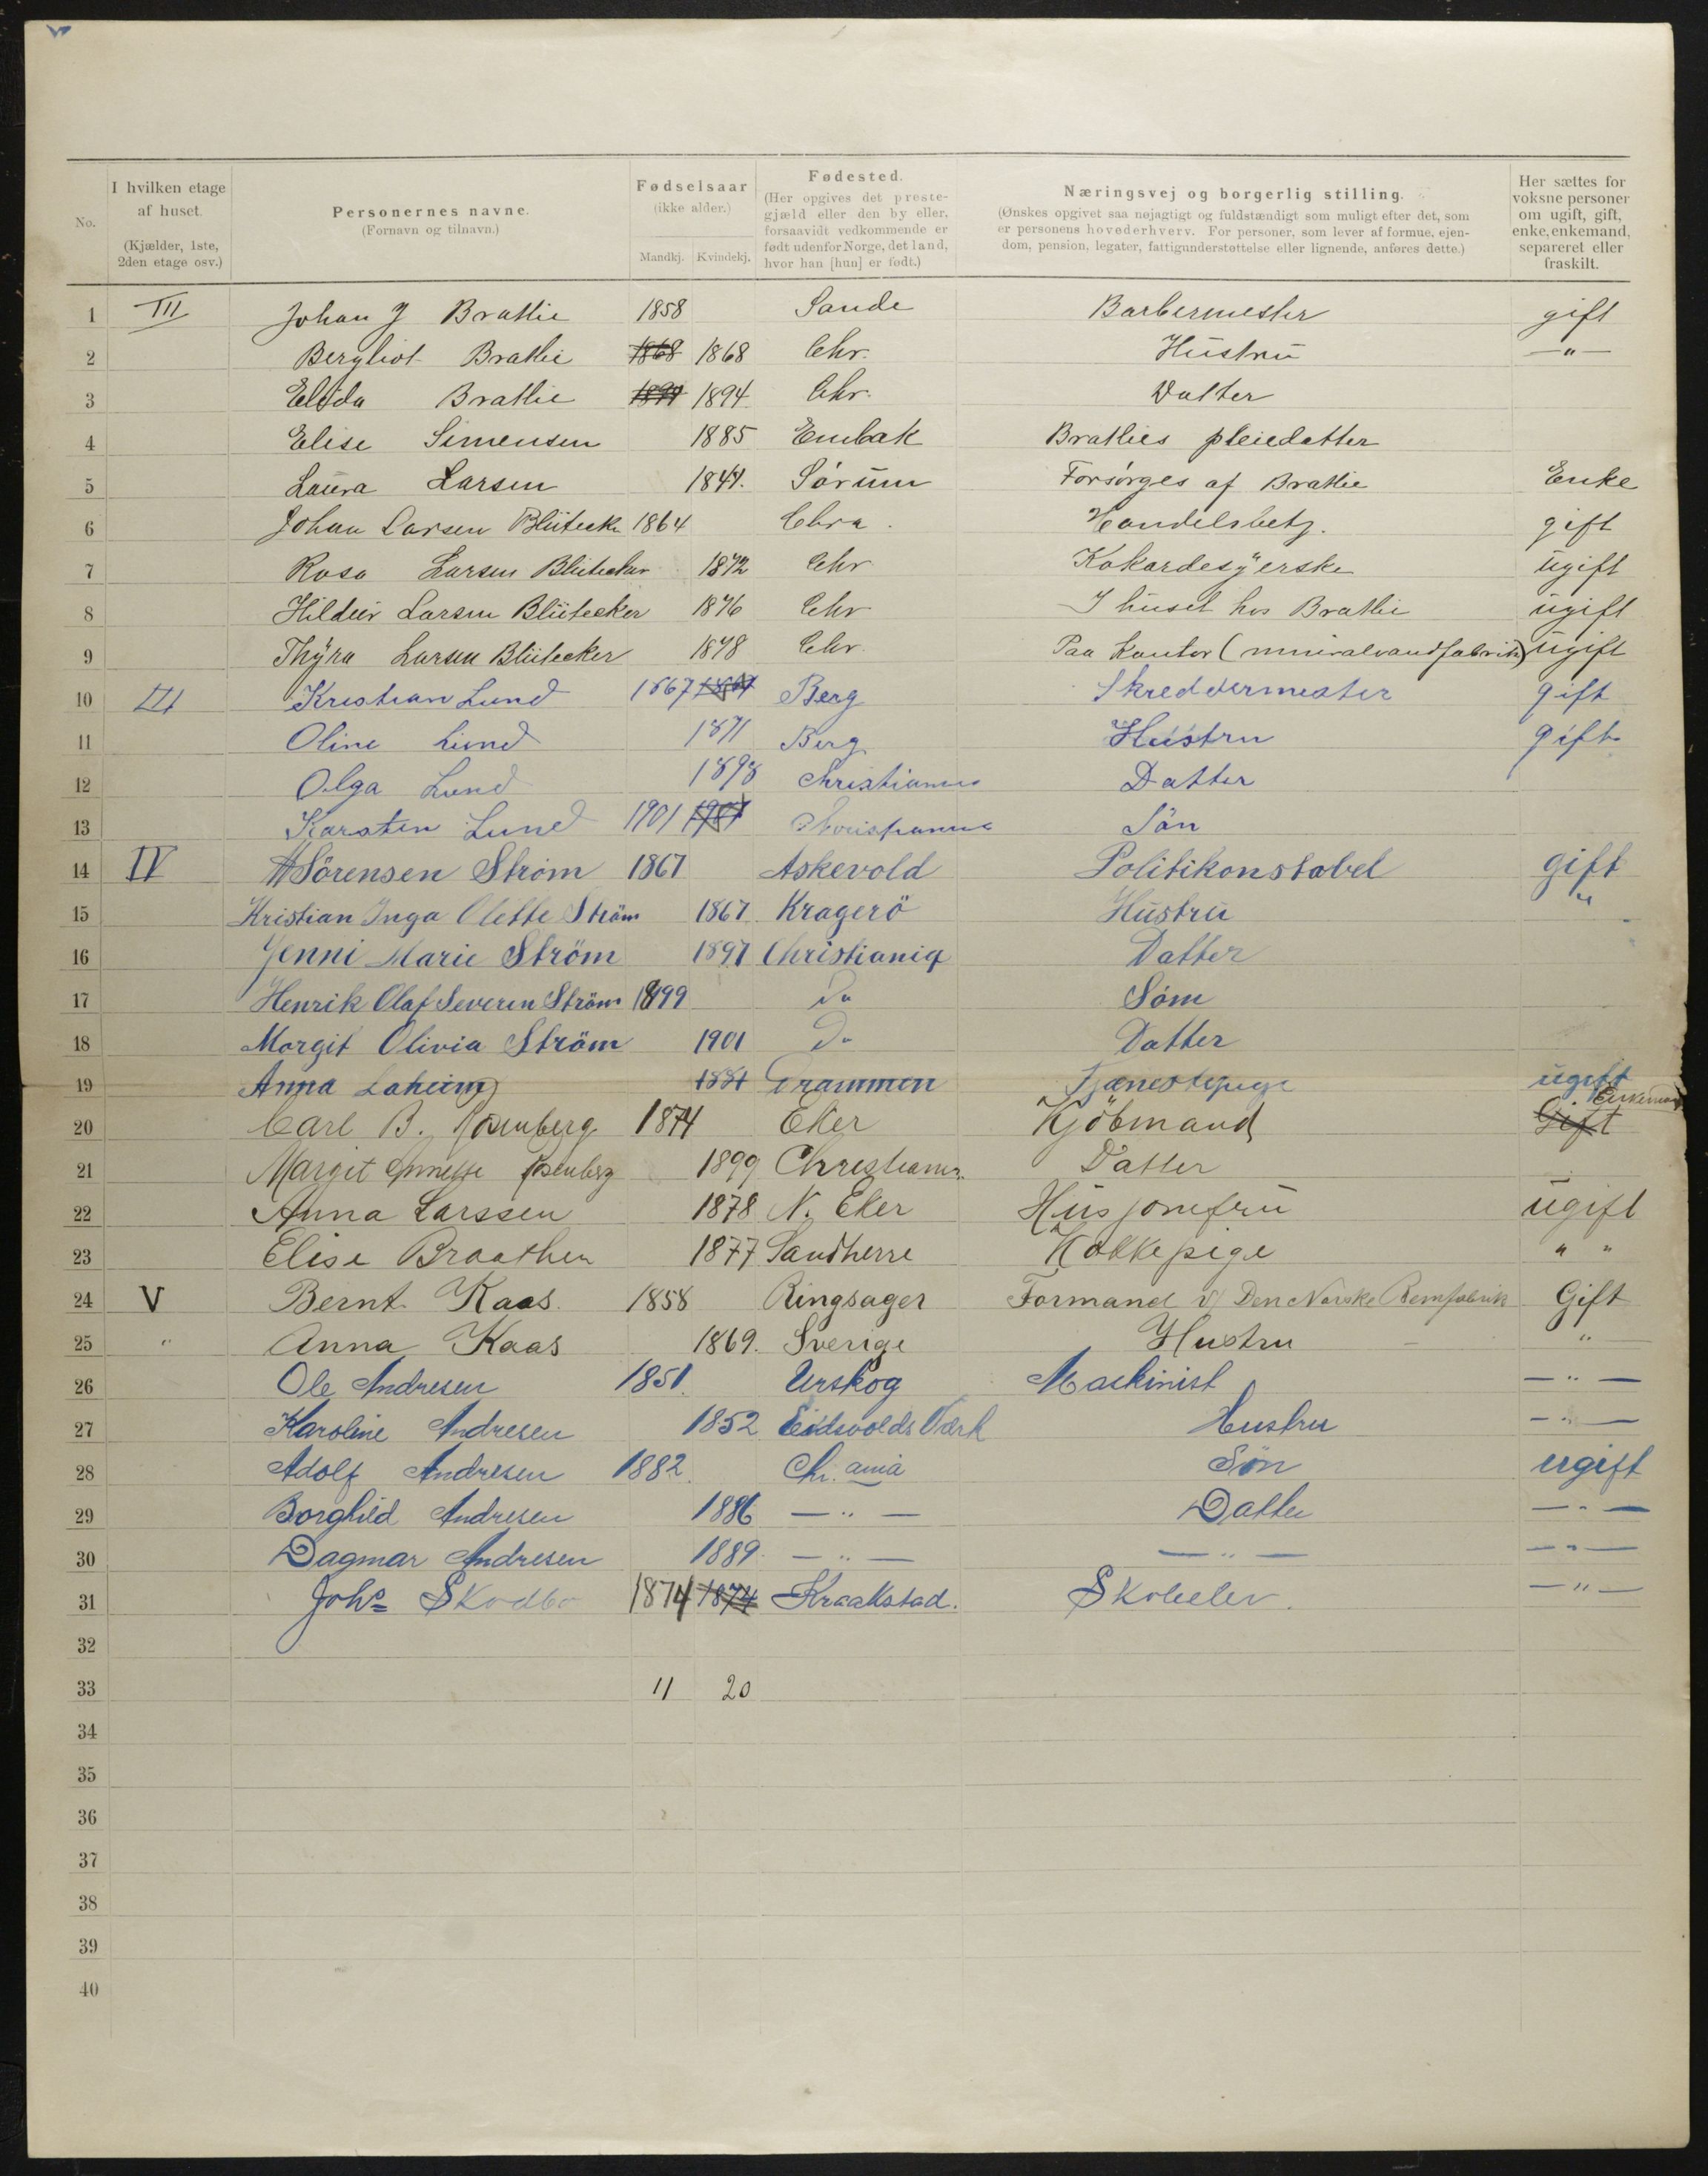 No.
I hvilken etage af huset. (Kjælder, 1ste, 2den etage osv.)
Personernes navne. (Fornavn og tilnavn.)
Fødselsaar (ikke alder.) Mandkj. Kvindekj.
Fødested. (Her opgives det prestegjæld eller den by eller, forsaavidt vedkommende er født udenfor Norge, det land, hvor han [hun] er født.)
Næringsvej og borgerlig stilling. (Ønskes opgivet saa nøjagtigt og fuldstændigt som muligt efter det, som er personens hovederhverv. For personer, som lever af formue, ejendom, pension, legater, fattigunderstøttelse eller lignende, anføres dette.)
Her sættes for voksne personer om ugift, gift, enke, enkemand, separeret eller fraskilt.
1 III Johan J Brathie 1858 Sande Barbermester gift
2 Bergliot Brathie 1868 1868 Chr. Hustru —"—
3 Elida Brathie 1894 1894 Chr. Datter
4 Elise Simensen 1885 Enebak Brathies pleiedatter
5 Laura Larsen 1844. Sørum Forsørges af Brathie Enke
6 Johan Larsen Blütecker 1864 Chra. Handelsbetj. gift
7 Rosa Larsen Blütecker 1872 Chr Kokardesyerske ugift
8 Hildur Larsen Blütecker 1876 Chr I huset hos Brathie ugift
9 Thyra Larsen Blütecker 1878 Chr. Paa Kontor (mineralvandfabrik) ugift
10 III Kristian Lund 1867 1867 Berg Skreddermester gift
11 Oline Lund 1871 Berg Hustru gift
12 Olga Lund 1898 Christiania Datter
13 Karsten Lund 1901 1901 Christiania Sön
14 IV Sörensen Strøm 1867 Askevold Politikonstabel gift
15 Kristian Inga Olette Ström 1867 Kragerö Hustru "
16 Jenni Marie Ström 1897 Christiania Datter
17 Henrik Olaf Severin Ström 1899 Do Søm
18 Morgit Olivia Ström 1901 Do Datter
19 Anna Laheim 1881 Drammen Tjenestepige ugift
20 Carl B. Rosenberg 1874 Eker Kjöbmand Gift Enkemand
21 Margit Annette Rosenberg 1899 Christiania Datter
22 Anna Larssen 1878 N. Eker Husjomfru ugift
23 Elise Braathen 1877 Sandherre Kokkepige " "
24 V Bernt Kaas 1858 Ringsager Formand v/ Den Norske Remfabrik Gift
25 " Anna Kaas 1869. Sverige Hustru "
26 Ole Andresen 1851. Urskog Maskinist —"—
27 Karoline Andresen 1852 Eidsvolds Værk Hustru —"—
28 Adolf Andresen 1882. Chr. ania Søn ugift
29 Borghild Andresen 1886 —"— Datter —"—
30 Dagmar Andresen 1889 —"— —"— —"—
31 Johs Skodbo 1874 1874 Kraakstad. Skoleelev. —"—
32
33 11 20
34
35
36
37
38
39
40